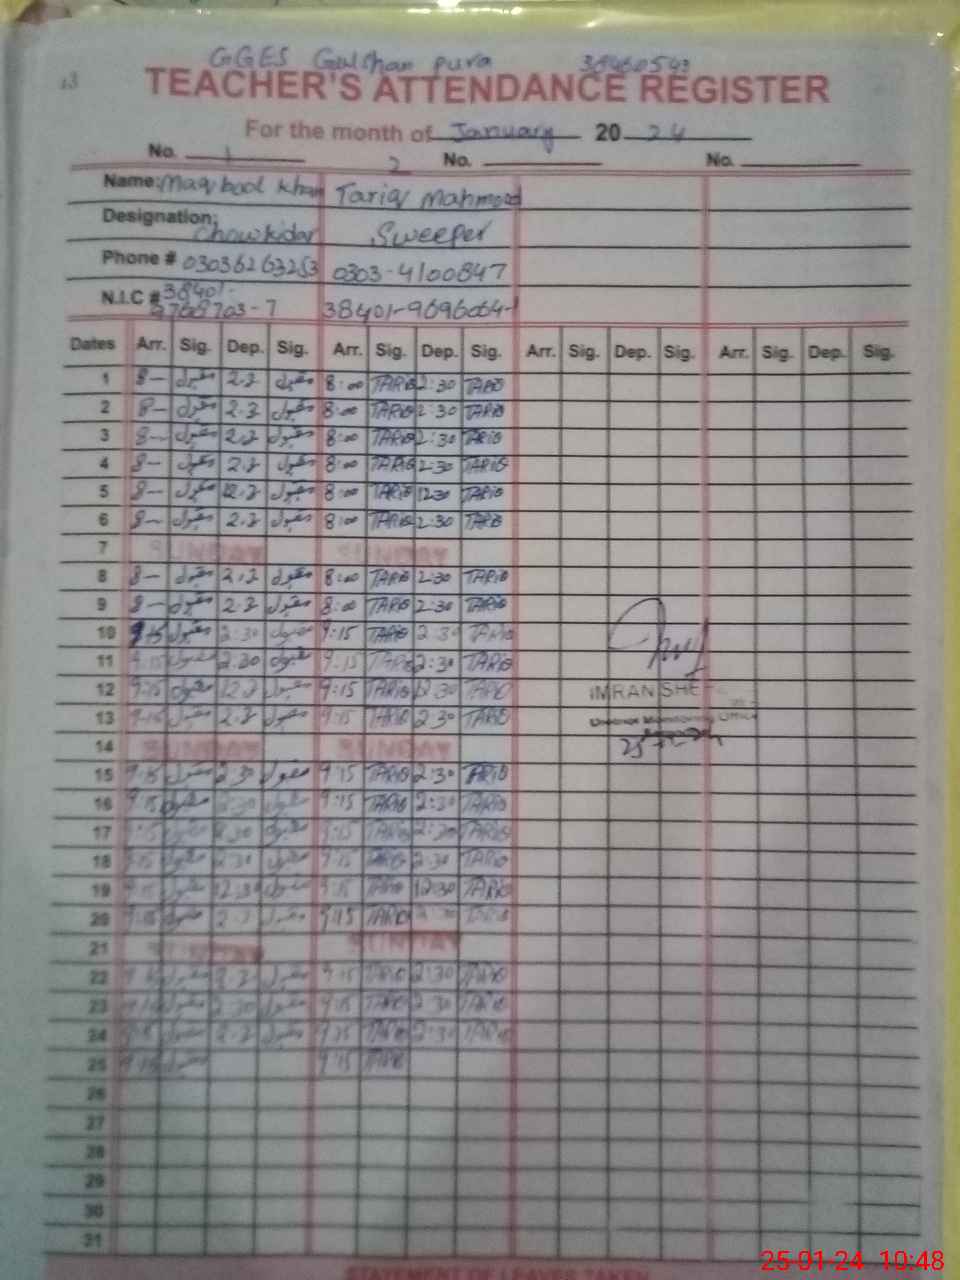 13
GGES Gulshan pura 38460543
TEACHER'S ATTENDANCE REGISTER
For the month of January 20 24
No. 1 2 No. No.
Name: Maqbool Khan Tariq Mahmood
Designation: Chowkidar Sweeper
Phone # 03036263253 0303-4100847
N.I.C # 38401- 38401-9696064-1
Dates Arr. Sig. Dep. Sig. Arr. Sig. Dep. Sig. Arr. Sig. Dep. Sig. Arr. Sig. Dep. Sig.
1 8- مقبول 2.3 مقبول 8:00 TARiQ 2:30 TARiQ
2 8- مقبول 2.3 مقبول 8:00 TARiQ 2:30 TARiQ
3 8- مقبول 2.3 مقبول 8:00 TARiQ 2:30 TARiQ
4 8- مقبول 2.3 مقبول 8:00 TARiQ 2:30 TARiQ
5 8- مقبول 12.3 مقبول 8:00 TARiQ 1230 TARiQ
6 8- مقبول 2.3 مقبول 8:00 TARiQ 2:30 TARiQ
7 SUNDAY SUNDAY
8 8- مقبول 2.3 مقبول 8:00 TARiQ 2:30 TARiQ
9 8- مقبول 2.3 مقبول 8:00 TARiQ 2:30 TARiQ
10 9:15 مقبول 2:30 مقبول 9:15 TARiQ 2:30 TARiQ
11 9:15 مقبول 2.30 مقبول 9:15 TARiQ 2:30 TARiQ
12 9:15 مقبول 12.3 مقبول 9:15 TARiQ 12:30 TARiQ
IMRAN SHE
13 9:15 مقبول 2.3 مقبول 9:15 TARiQ 2:30 TARiQ
14 SUNDAY SUNDAY
15 9:15 مقبول 2:30 مقبول 9:15 TARiQ 2:30 TARiQ
16 9:15 مقبول 2:30 مقبول 9:15 TARiQ 2:30 TARiQ
17 9:15 مقبول 2.30 مقبول 9:15 TARiQ 2:30 TARiQ
18 9:15 مقبول 2:30 مقبول 9:15 TARiQ 2:30 TARiQ
19 9:15 مقبول 12:30 مقبول 9:15 TARiQ 12:30 TARiQ
20 9:15 مقبول 2.3 مقبول 9:15 TARiQ 2:30 TARiQ
21 SUNDAY SUNDAY
22 9:15 مقبول 2.3 مقبول 9:15 TARiQ 2:30 TARiQ
23 9:15 مقبول 2:30 مقبول 9:15 TARiQ 2:30 TARiQ
24 9:15 مقبول 2.3 مقبول 9:15 TARiQ 2:30 TARiQ
25 9:15 مقبول 9:15 TARiQ
26
27
28
29
30
31
25-01-24 10:48